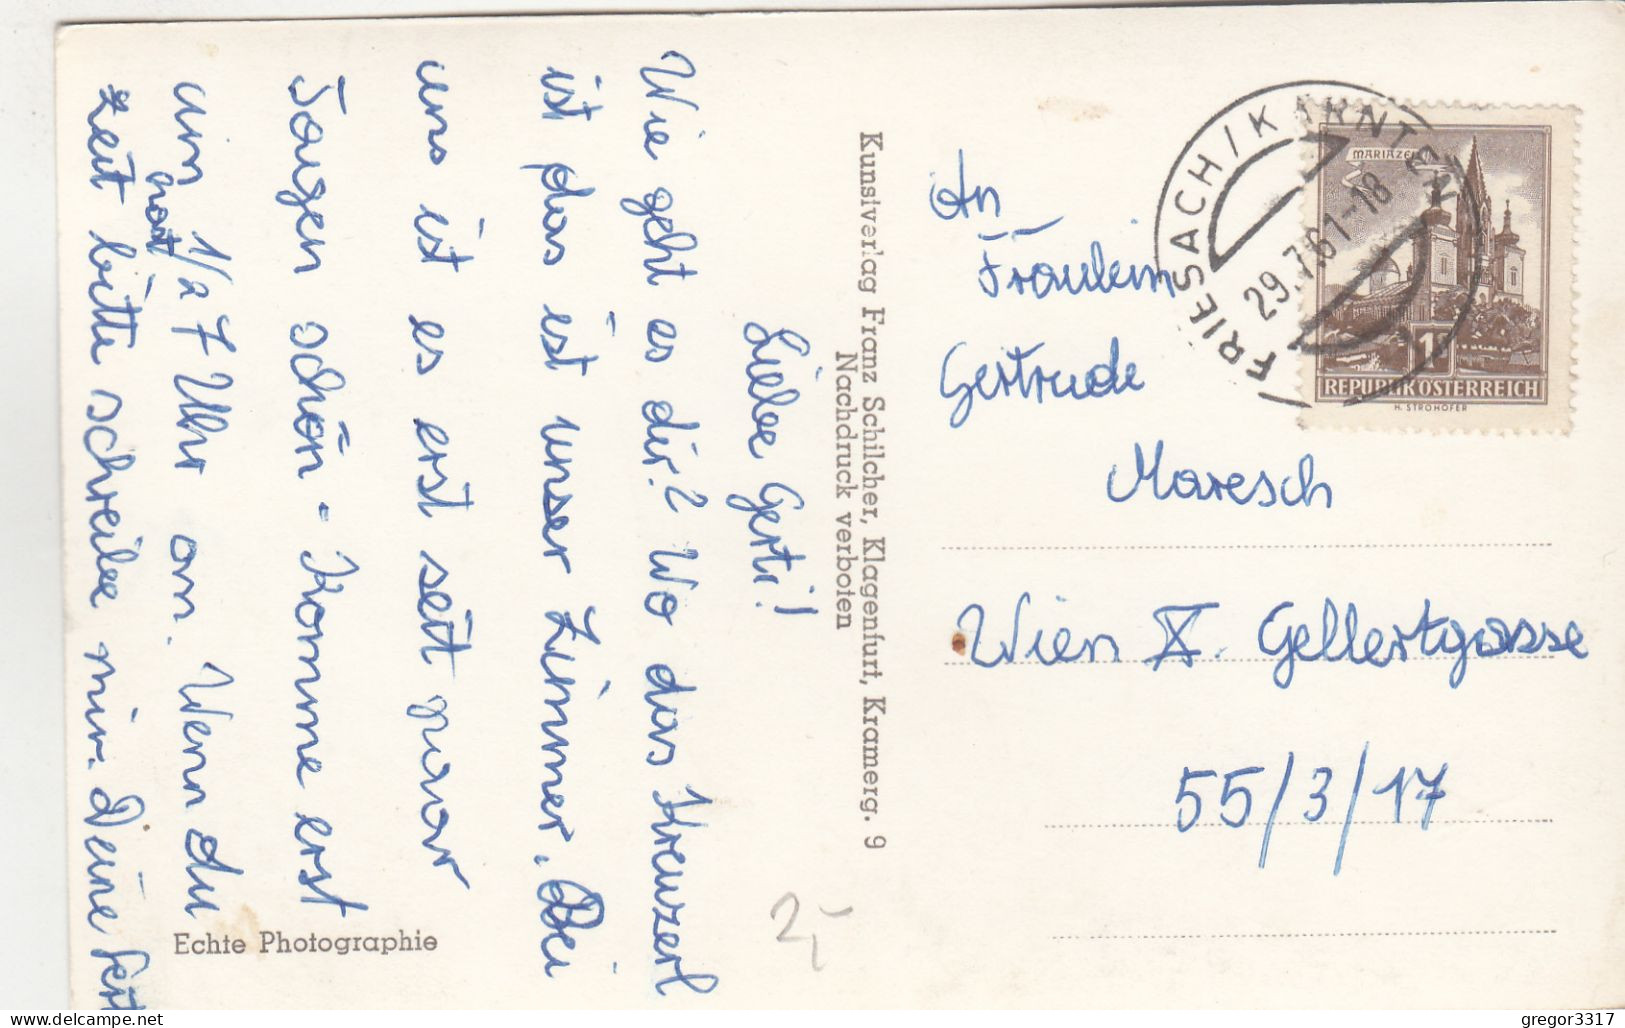 Liebe Gerti!
Wie geht es dir? Wo das Kreuzerl
ist das ist unser Zimmer. Bei
uns ist es erst seit paar
Tagen schön. Komme erst
um 1/2 7 Uhr an. Wenn du
hast
Zeit bitte schreibe mir. Deine
Echte Photographie
Kunstverlag Franz Schilcher, Klagenfurt, Kramerg. 9
Nachdruck verboten
2,-
An
Fräulein
Gertrude
Maresch
Wien X. Gellertgasse
55/3/17
FRIESACH/KÄRNTEN
29.7.61-18
MARIAZELL
1S
REPUBLIK ÖSTERREICH
H. STROHOFER
gregor3317